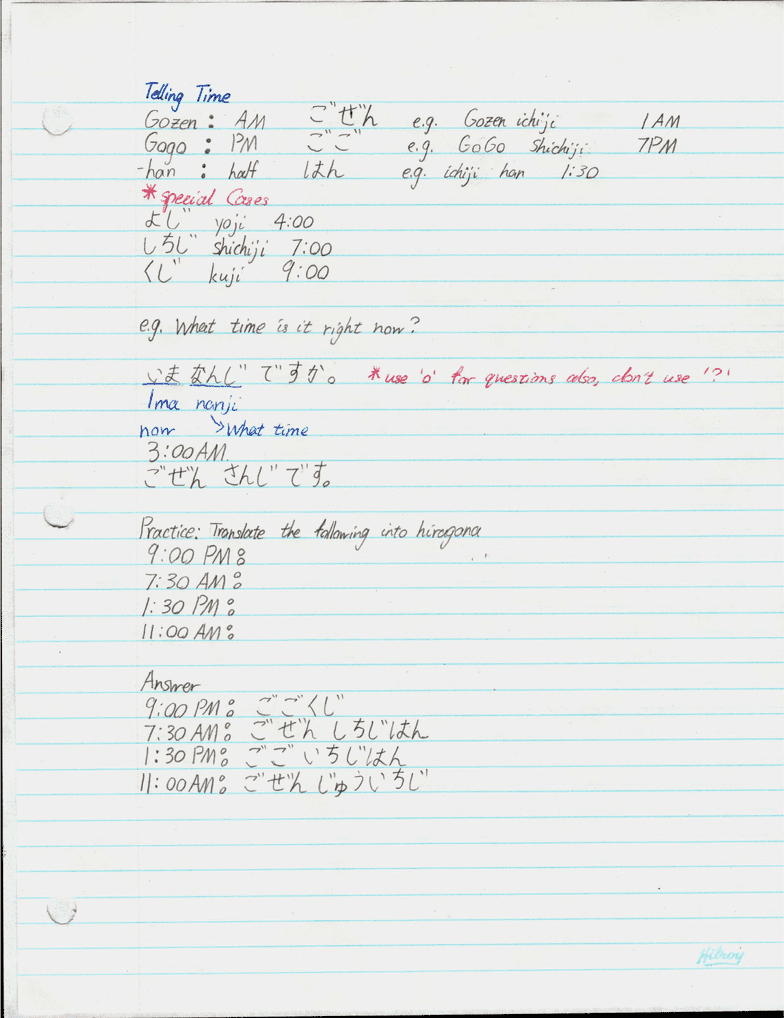 Telling Time
Gozen : AM ごぜん e.g. Gozen ichiji 1 AM
Gogo : PM ごご e.g. GoGo Shichiji 7PM
-han : half はん e.g. ichiji han 1:30
*special Cases
よじ yoji 4:00
しちじ shichiji 7:00
くじ kuji 9:00
e.g. What time is it right now?
いま なんじ ですか。 *use '。' for questions also, don't use '?'
Ima nanji
now →What time
3:00AM.
ごぜん さんじです。
Practice: Translate the following into hiragana
9:00 PM:
7:30 AM:
1:30 PM:
11:00 AM:
Answer
9:00 PM: ごごくじ
7:30 AM: ごぜん しちじはん
1:30 PM: ごご いちじはん
11:00AM: ごぜん じゅういちじ
Hilroy